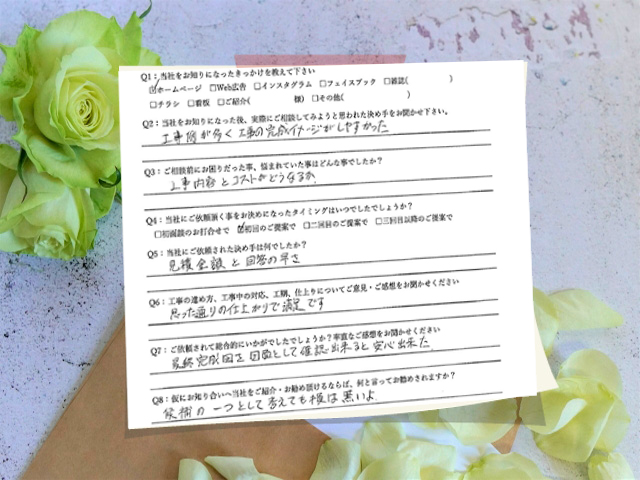 Q1：当社をお知りになったきっかけを教えて下さい
☑ホームページ □Web広告 □インスタグラム □フェイスブック □雑誌( )
□チラシ □看板 □ご紹介( 様) □その他( )
Q2：当社をお知りになった後、実際にご相談してみようと思われた決め手をお聞かせ下さい。
工事例が多く 工事の完成イメージがしやすかった
Q3：ご相談前にお困りだった事、悩まれていた事はどんな事でしたか？
工事内容とコストがどうなるか、
Q4：当社にご依頼頂く事をお決めになったタイミングはいつでしたでしょうか？
□初面談のお打合せで ☑初回のご提案で □二回目のご提案で □三回目以降のご提案で
Q5：当社にご依頼された決め手は何でしたか？
見積金額と回答の早さ
Q6：工事の進め方、工事中の対応、工期、仕上りについてご意見・ご感想をお聞かせください
思った通りの仕上がりで満足です
Q7：ご依頼されて総合的にいかがでしたでしょうか？率直なご感想をお聞かせください
最終完成図を図面として確認出来ると安心出来た
Q8：仮にお知り合いへ当社をご紹介・お勧め頂けるならば、何と言ってお勧めされますか？
候補の一つとして考えても損は無いよ